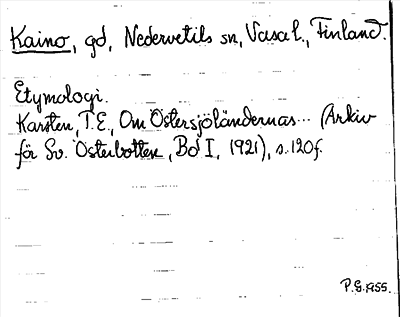 Kaino, gd, Nedervetils sn, Vasa l., Finland.
Etymologi.
Karsten, T.E., Om Östersjöländernas... (Arkiv
för Sv. Österbotten, Bd I, 1921), s. 120f.
P.G. 1955.